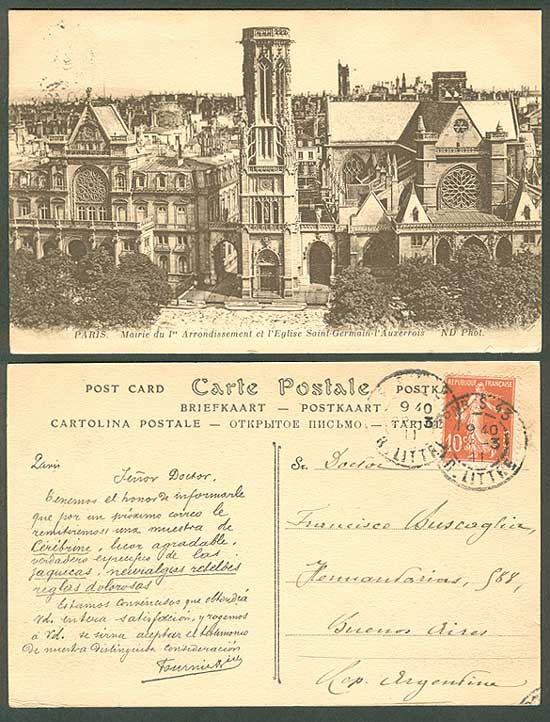 PARIS. Mairie du Iᵉʳ Arrondissement et l'Eglise Saint-Germain-l'Auxerrois ND Phot.
POST CARD Carte Postale POSTKA
BRIEFKAART — POSTKAART —
CARTOLINA POSTALE — ОТКРЫТОЕ ПИСЬМО. — TARJ
9 40
3
11
R. LITTRÉ
REPUBLIQUE FRANÇAISE
10
PARIS 43
9 40
-3
11
R. LITTRÉ
Paris
Señor Doctor.
Tenemos el honor de informarle
que por un próximo correo le
remitiremos una muestra de
Cérébrine, licor agradable,
verdadero específico de las
jaquecas, neuralgias rebeldes
reglas dolorosas
Estamos convencidos que obtendrá
Vd. entera satisfacción, y rogamos
á Vd. se sirva aceptar el testimonio
de nuestra distinguida consideración
Fournier
Sr. Doctor
Francisco Buscaglia,
Hernandarias, 588,
Buenos Aires
Rep. Argentina